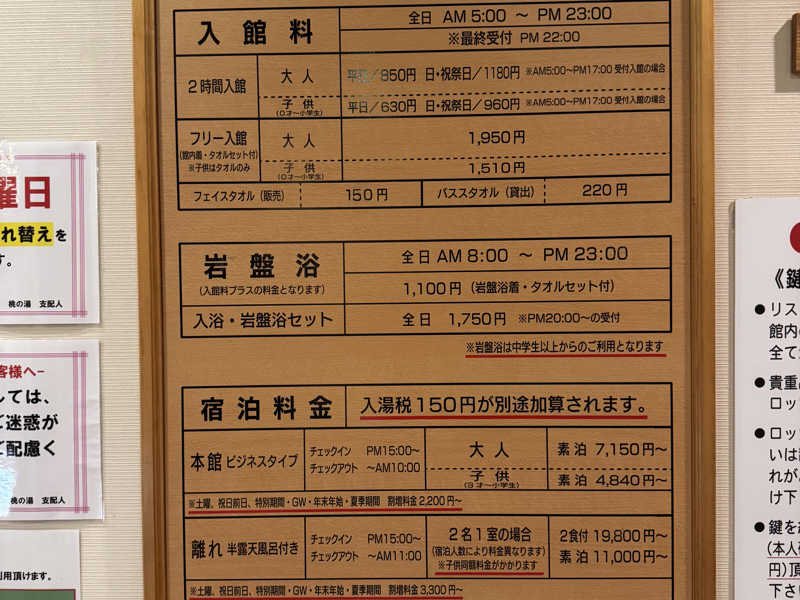 入館料
全日 AM 5:00 ～ PM 23:00
※最終受付 PM 22:00
2時間入館
大人
平日／850円 日・祝祭日／1180円 ※AM5:00～PM17:00 受付入館の場合
子供
(0才～小学生)
平日／630円 日・祝祭日／960円 ※AM5:00～PM17:00 受付入館の場合
フリー入館
(館内着・タオルセット付)
※子供はタオルのみ
大人
1,950円
子供
(0才～小学生)
1,510円
フェイスタオル（販売）
150円
バスタオル（貸出）
220円
岩盤浴
(入館料プラスの料金となります)
全日 AM 8:00 ～ PM 23:00
1,100円（岩盤浴着・タオルセット付）
入浴・岩盤浴セット
全日 1,750円 ※PM20:00～の受付
※岩盤浴は中学生以上からのご利用となります
宿泊料金
入湯税150円が別途加算されます。
本館 ビジネスタイプ
チェックイン PM15:00～
チェックアウト ～AM10:00
大人
素泊 7,150円～
子供
(3才～小学生)
素泊 4,840円～
※土曜、祝日前日、特別期間・GW・年末年始・夏季期間 割増料金 2,200円～
離れ 半露天風呂付き
チェックイン PM15:00～
チェックアウト ～AM11:00
2名1室の場合
(宿泊人数により料金異なります)
※子供同額料金がかかります
2食付 19,800円～
素泊 11,000円～
※土曜、祝日前日、特別期間・GW・年末年始・夏季期間 割増料金 3,300円～
曜日
れ替えを
す。
桃の湯 支配人
客様へ-
しては、
ご迷惑が
ご配慮く
桃の湯 支配人
利用頂けます。
《鍵
●リス
館内
全て
●貴重
ロッ
●ロッ
いは
れが
け下
●鍵を
(本人
円)頂
下さ